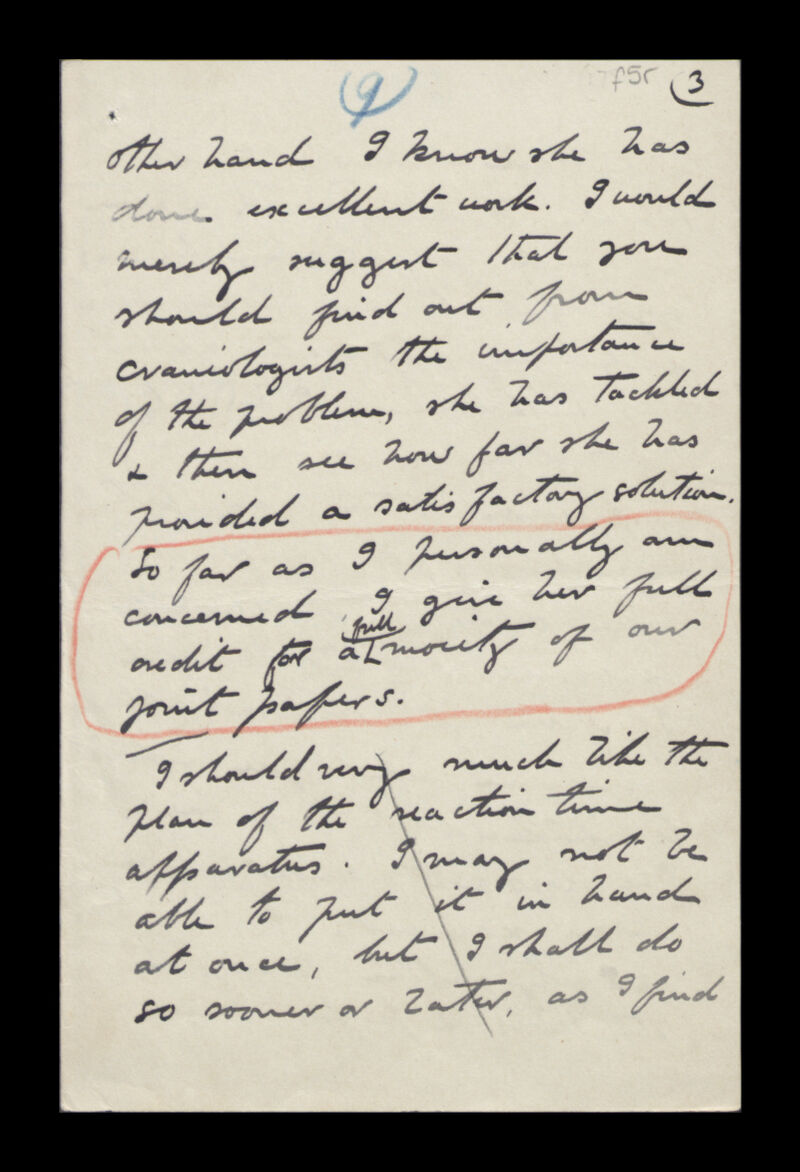 9
f5r
3
other hand I know she has
done. excellent work. I would
merely suggest that you
should find out from
craniologists the importance
of the problem, she has tackled
& then see how far she has
provided a satisfactory solution.
So far as I personally am
concerned, I give her full
credit for a full moiety of our
joint papers.
I should very much like the
plan of the reaction time
apparatus. I may not be
able to put it in hand
at once, but I shall do
so sooner or later, as I find